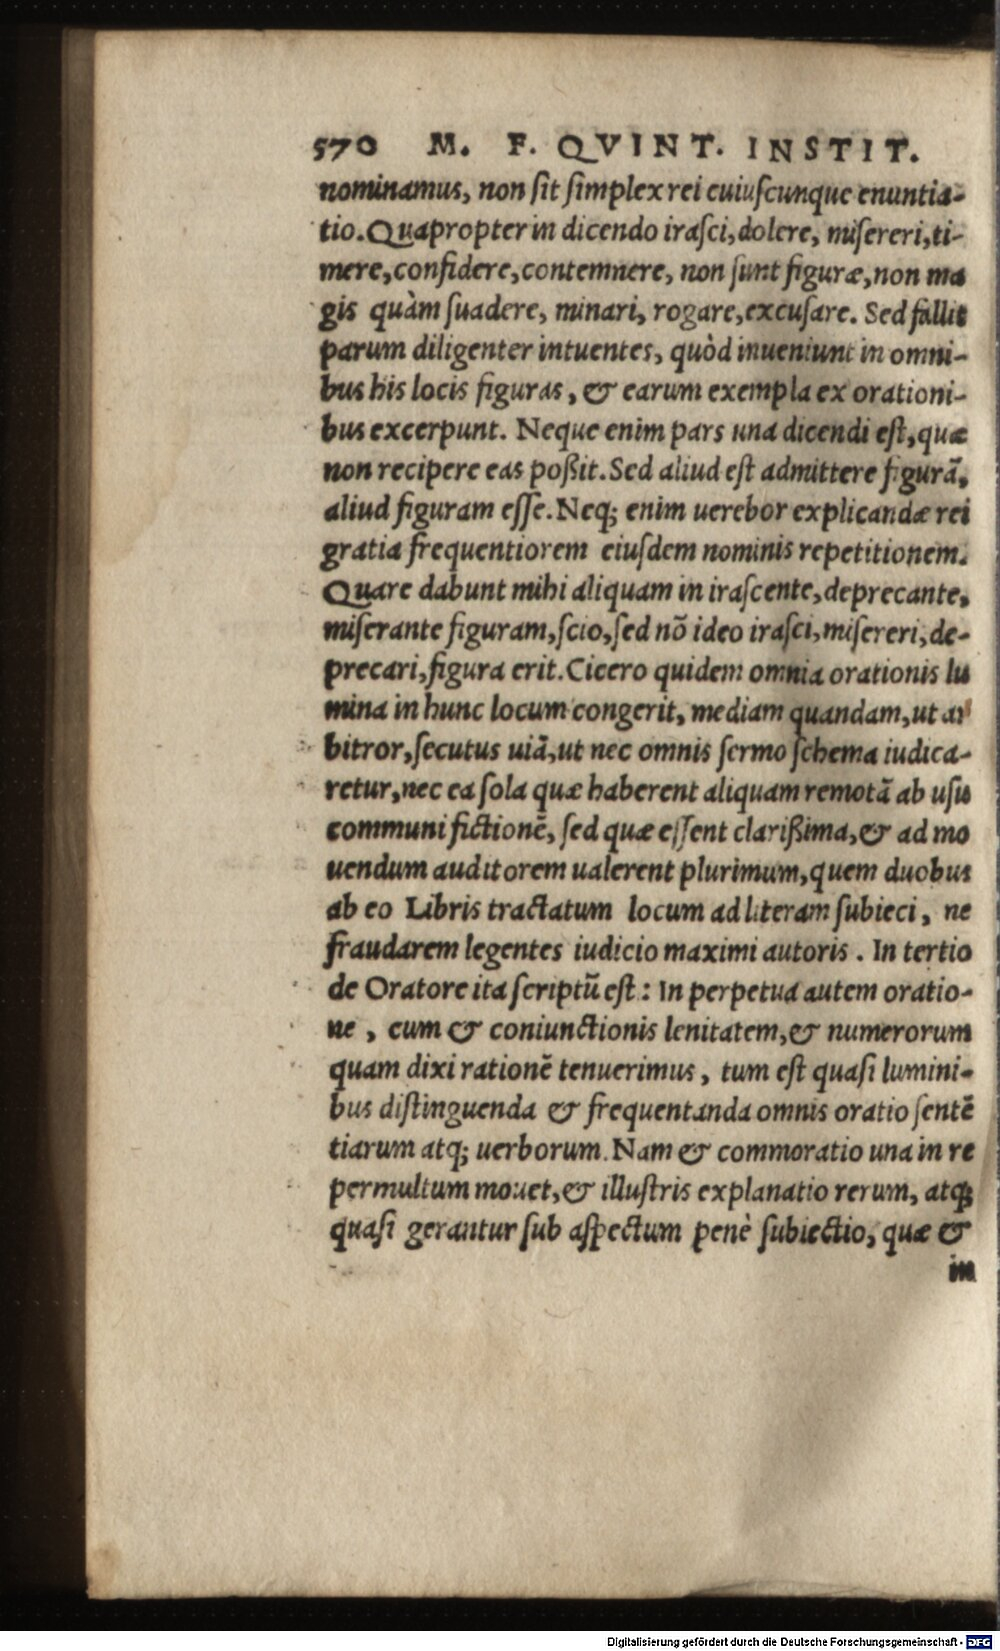 570 M. F. QVINT. INSTIT.
nominamus, non ſit ſimplex rei cuiuſcunque enuntia-
tio. Quapropter in dicendo iraſci, dolere, miſereri, ti-
mere, confidere, contemnere, non ſunt figuræ, non ma
gis quàm ſuadere, minari, rogare, excuſare. Sed fallit
parum diligenter intuentes, quòd inueniunt in omni-
bus his locis figuras, & earum exempla ex orationi-
bus excerpunt. Neque enim pars una dicendi eſt, quæ
non recipere eas poßit. Sed aliud eſt admittere figurã,
aliud figuram eſſe. Neq; enim uerebor explicandæ rei
gratia frequentiorem eiuſdem nominis repetitionem.
Quare dabunt mihi aliquam in iraſcente, deprecante,
miſerante figuram, ſcio, ſed nõ ideo iraſci, miſereri, de-
precari, figura erit. Cicero quidem omnia orationis lu
mina in hunc locum congerit, mediam quandam, ut ar
bitror, ſecutus uiã, ut nec omnis ſermo ſchema iudica-
retur, nec ea ſola quæ haberent aliquam remotã ab uſu
communi fictionẽ, ſed quæ eſſent clarißima, & ad mo
uendum auditorem ualerent plurimum, quem duobus
ab eo Libris tractatum locum ad literam ſubieci, ne
fraudarem legentes iudicio maximi autoris. In tertio
de Oratore ita ſcriptũ eſt: In perpetua autem oratio-
ne, cum & coniunctionis lenitatem, & numerorum
quam dixi rationẽ tenuerimus, tum eſt quaſi lumini-
bus diſtinguenda & frequentanda omnis oratio ſentẽ
tiarum atq; uerborum. Nam & commoratio una in re
permultum mouet, & illuſtris explanatio rerum, atq;
quaſi gerantur ſub aſpectum penè ſubiectio, quæ &
in
Digitalisierung gefördert durch die Deutsche Forschungsgemeinschaft - DFG